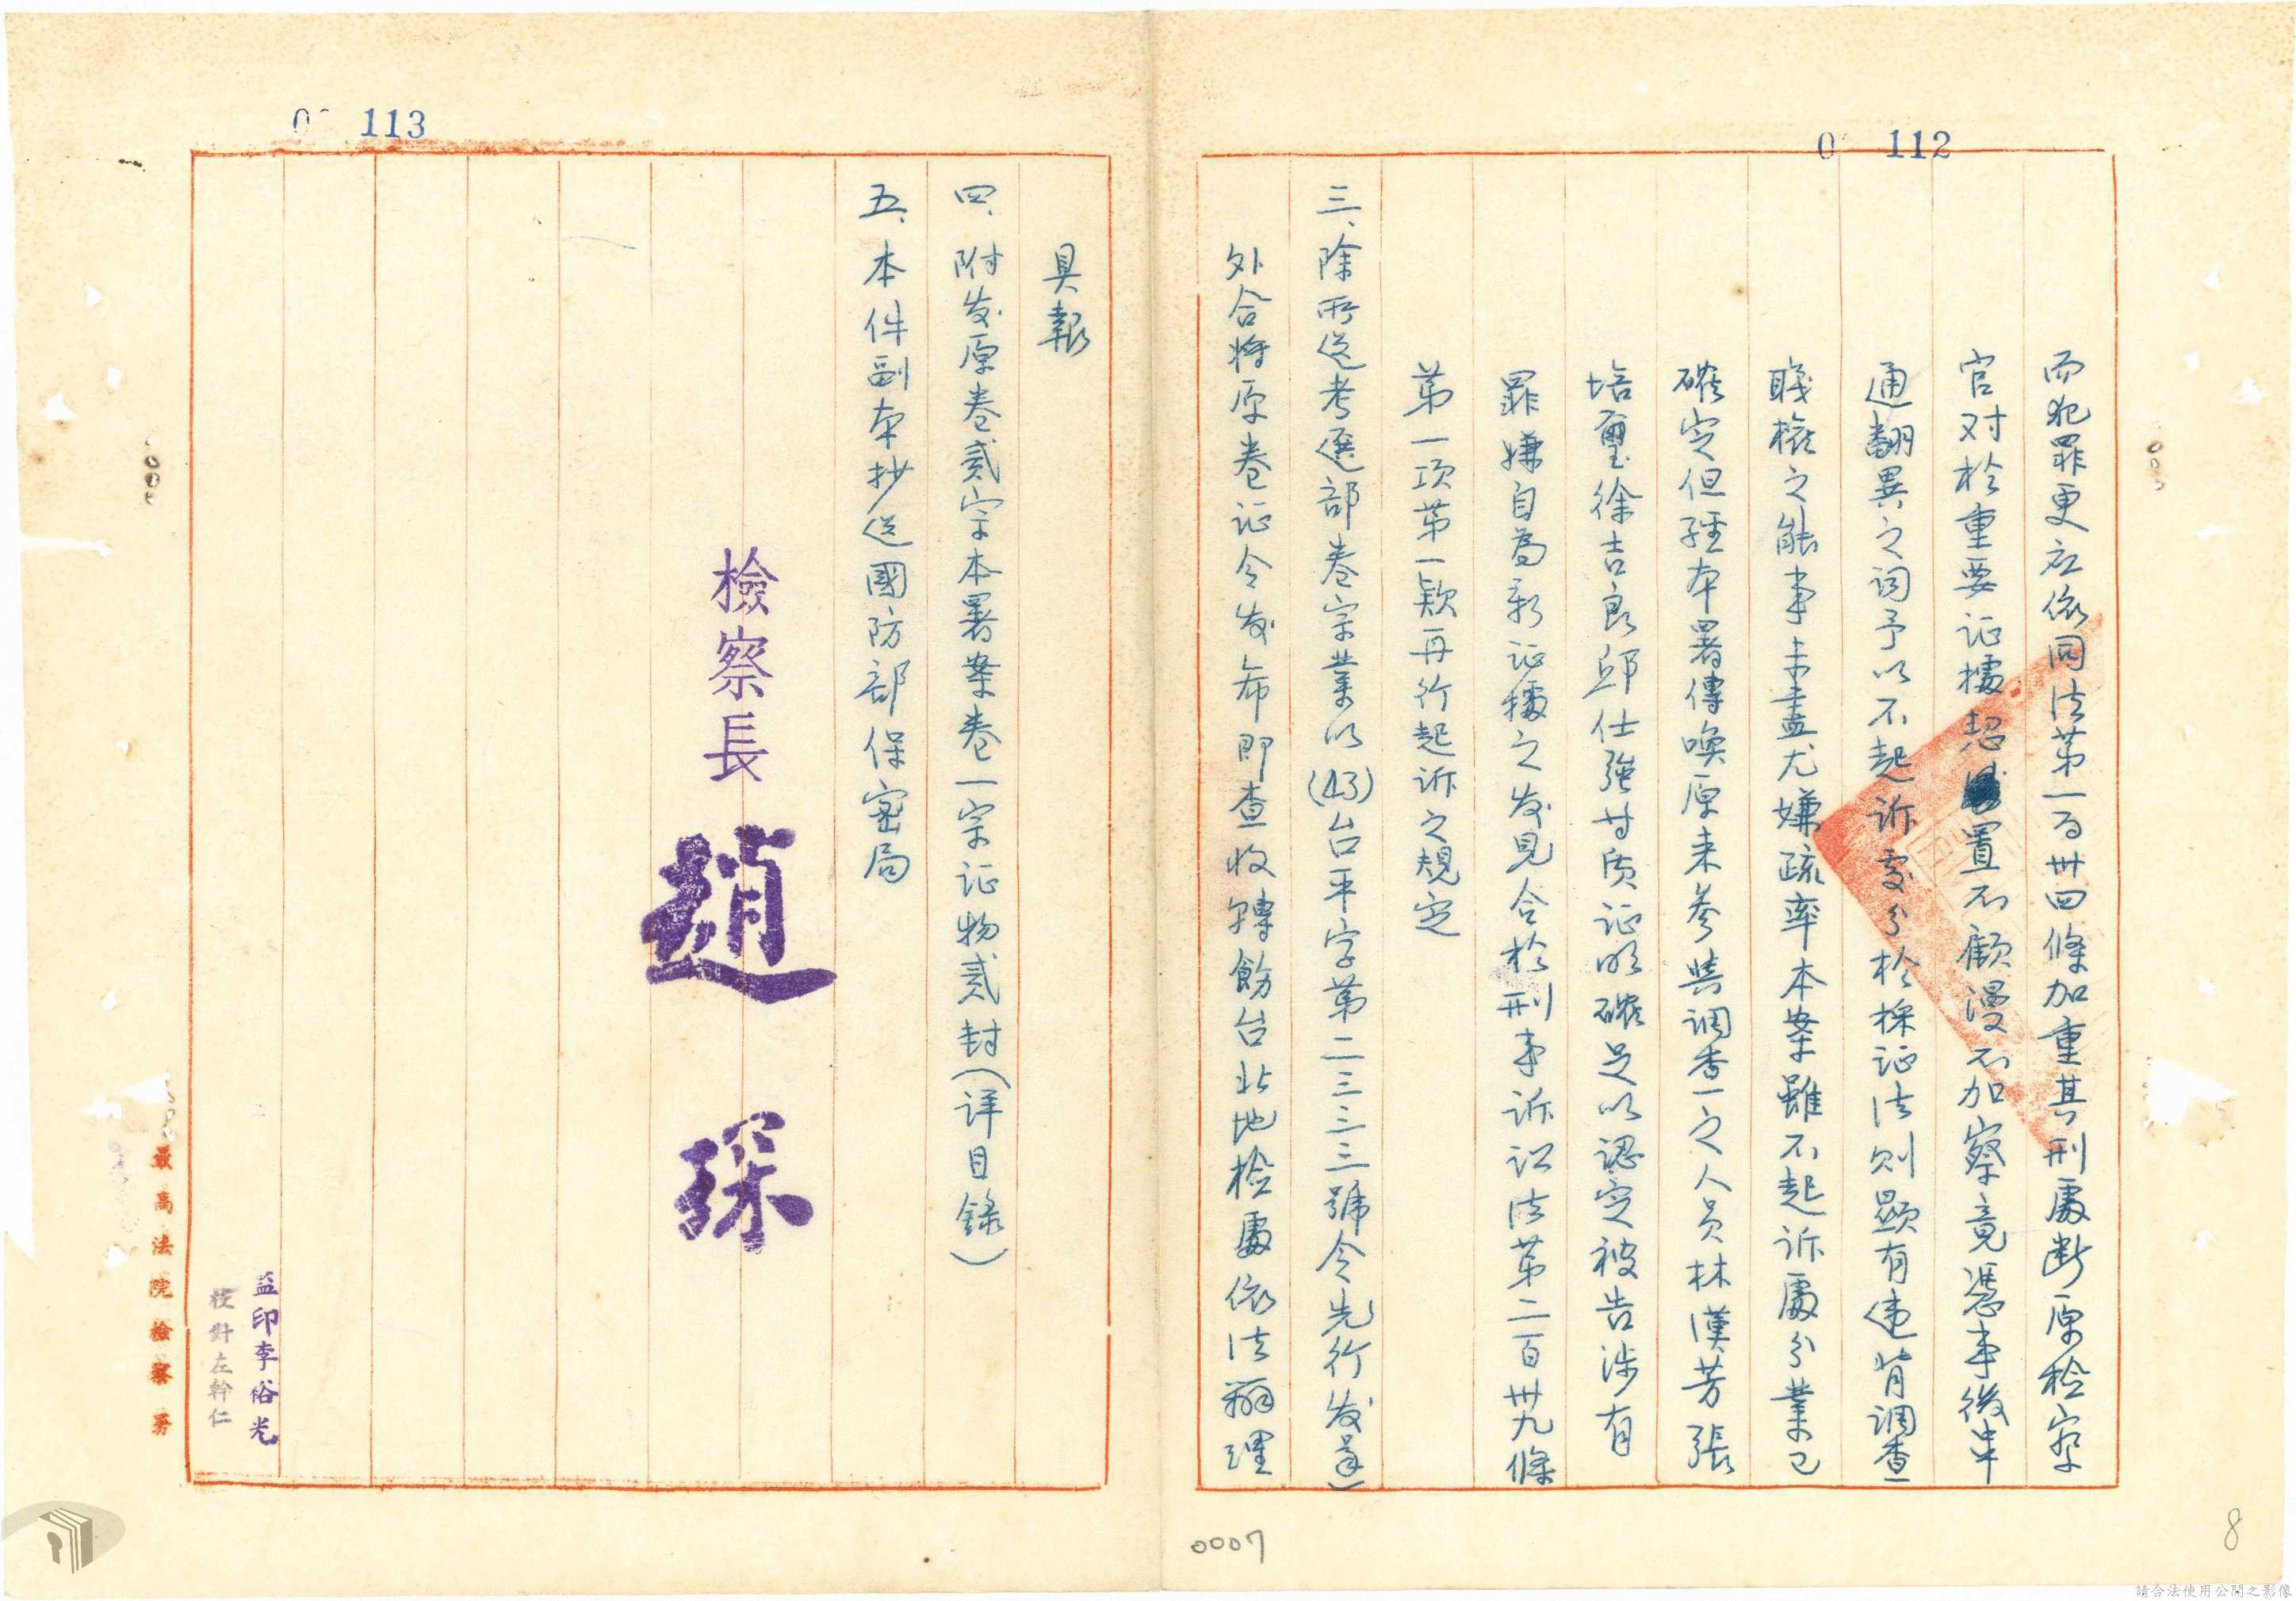 0 112
而犯罪更应依同法第一百卅四條加重其刑處断原检察
官对於重要证據恝置不顧漫不加察竟憑事後串
通翻異之词予以不起诉處分於採证法则顯有违背调查
職權之能事未盡尤嫌疏率本案雖不起诉處分業已
確定但經本署傳唤原来参與调查之人员林漢芳張
培璽徐吉良邱仕強对质证明確足以認定被告涉有
罪嫌自為新证據之发見合於刑事诉讼法第二百卅九條
第一项第一款再行起诉之規定
三、除所送考選部卷宗業以(43)台平字第二三三三號令先行发还
外合将原卷证令发希即查收轉飭台北地检處依法辦理
0007
8
0 113
具報
四、附发原卷貳宗本署案卷一宗证物貳封(详目錄)
五、本件副本抄送國防部保密局
檢察長 趙 琛
监印李裕光
校對左幹仁
最高法院檢察署
請合法使用公開之影像